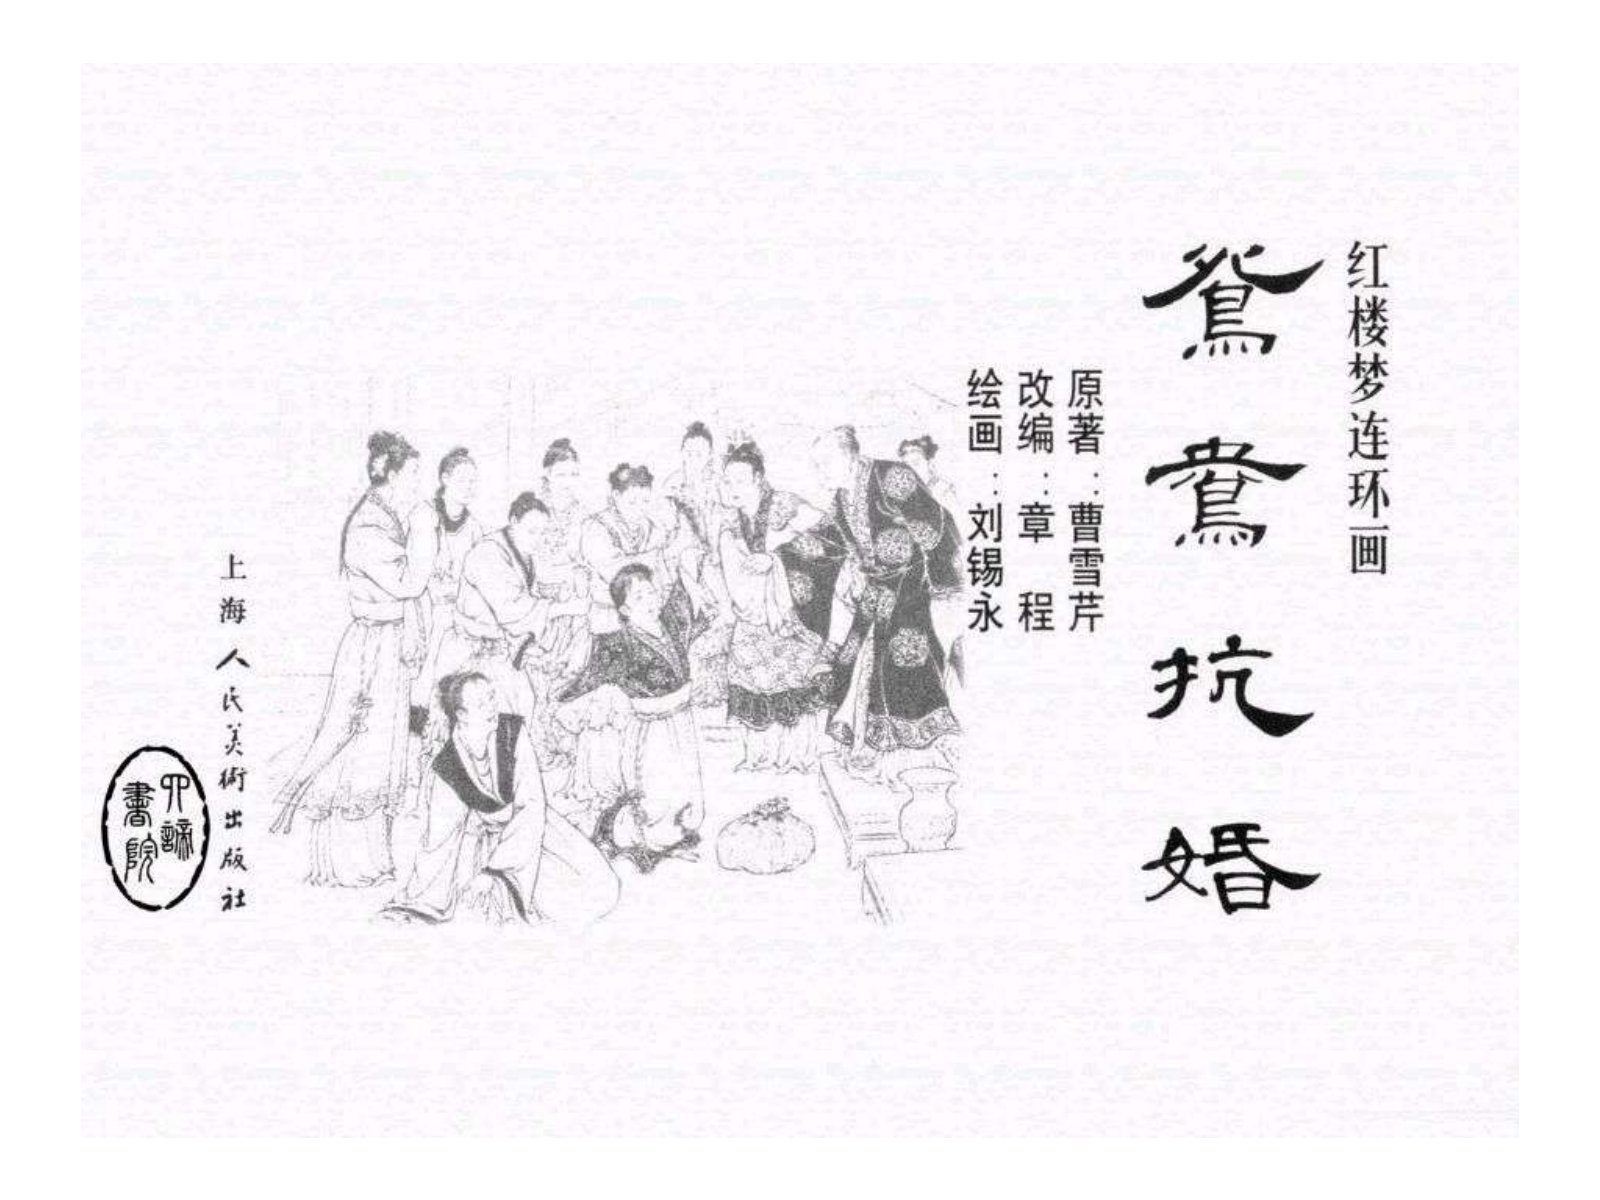 红楼梦连环画
鸳鸯抗婚
原著：曹雪芹
改编：章　程
绘画：刘锡永
上海人民美術出版社
四諦
書院